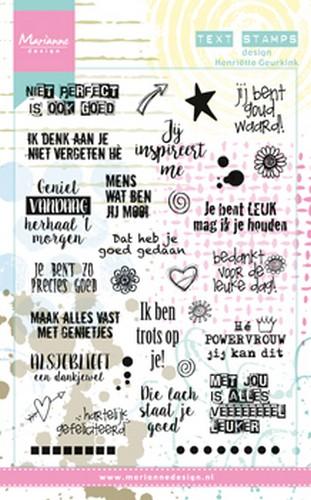 Marianne
design
TEXT STAMPS
design
Henriëtte Geurkink
NIET PERFECT
IS OOK GOED
jij bent
goud
waard!
Jij
inspireert
me
IK DENK AAN JE
NIET VERGETEN HÈ
Geniet
VANDAAG
herhaal 't
morgen
MENS
WAT BEN
JIJ MOOI
Je bent LEUK
mag ik je houden
Dat heb je
goed gedaan
JE BENT ZO
PRECIES GOED
bedankt
voor de
leuke dag!
MAAK ALLES VAST
MET GENIETJES
Ik ben
trots op
je!
Hé
POWERVROUW
jij kan dit
ALSJEBLIEFT
een dankjewel
Die lach
staat je
goed
MET JOU
IS ALLES
VEEEEEEEL
LEUKER
hartelijk
gefeliciteerd!
www.mariannedesign.nl